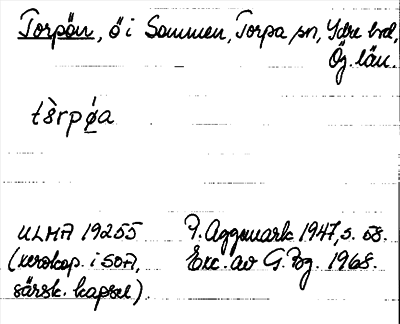 Torpön, ö i Sommen, Torpa sn, Ydre hd,
Ög. län.
tɞ̀rpǿ̠a
ULMA 19255
(xerokop. i SOA,
särsk. kapsel).
P. Aggemark 1947, s. 58.
Exc. av G. Bg. 1968.